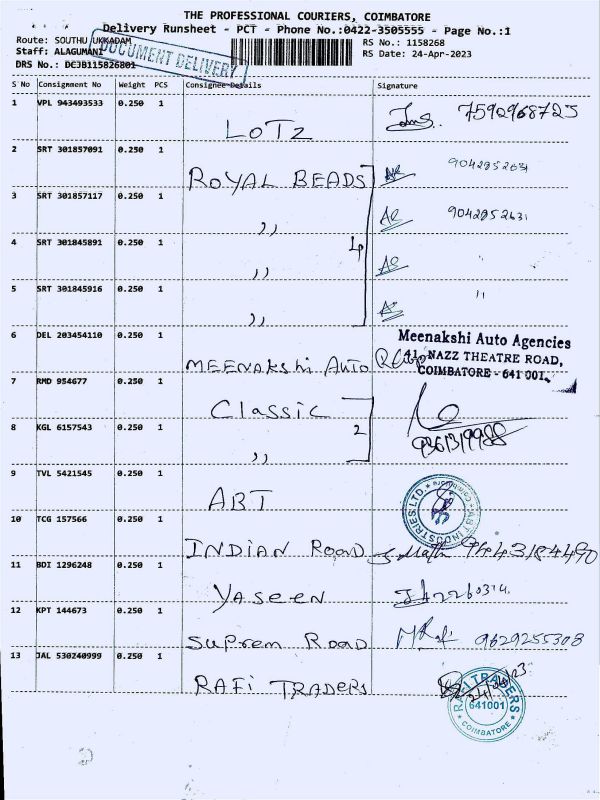 THE PROFESSIONAL COURIERS, COIMBATORE
Delivery Runsheet - PCT - Phone No.:0422-3505555 - Page No.:1
Route: SOUTHU UKKADAM
RS No.: 1158268
Staff: ALAGUMANI
RS Date: 24-Apr-2023
DRS No.: DCJB115826801
DOCUMENT DELIVERY
S No Consignment No Weight PCS Consignee Details Signature
1 VPL 943493533 0.250 1 LOTZ 7592968725
2 SRT 301857091 0.250 1 ROYAL BEADS 9042852631
3 SRT 301857117 0.250 1 ,, 9042852631
4 SRT 301845891 0.250 1 ,, "
4p
5 SRT 301845916 0.250 1 ,, "
6 DEL 203454110 0.250 1 MEENAKshi AUTO
Meenakshi Auto Agencies
41, NAZZ THEATRE ROAD,
COIMBATORE - 641 001.
7 RMD 954677 0.250 1 Classic
8 KGL 6157543 0.250 1 ,, 2 9361319988
9 TVL 5421545 0.250 1 ABT
ABT INDUSTRIES LTD. * COIMBATORE *
10 TCG 157566 0.250 1 INDIAN Road 9443184490
11 BDI 1296248 0.250 1 YASEEN
12 KPT 144673 0.250 1 Suprem Road 9629255308
13 JAL 530240999 0.250 1 RAFi TRADERS
RAFI TRADERS 641001 * COIMBATORE *